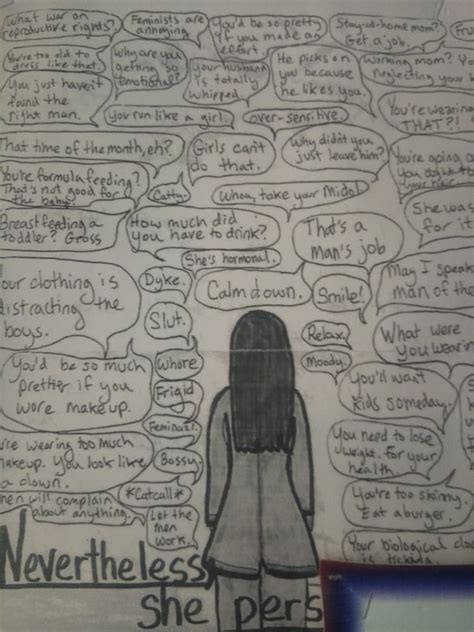 What war on
reproductive rights?
Feminists are
annoying
You'd be so pretty
if you made an
effort.
Stay-at-home mom?
Get a job.
You're too old to
dress like that.
Why are you
getting so
emotional?
Your husband
is totally
whipped
He picks on
you because
he likes you.
Working mom?
neglecting your
You just haven't
found the
right man.
you run like a girl.
over-sensitive.
You're wearing
THAT?!
That time of the month, eh?
Girls can't
do that.
Why didn't you
just leave him?
You're going
You're formula feeding?
That's not good for
the baby.
Catty.
Whoa, take your Midol.
She was
for it
Breastfeeding a
toddler? Gross
How much did
you have to drink?
That's a
man's job
She's hormonal.
our clothing is
distracting the
boys.
Dyke.
Calm down.
Smile!
May I speak
man of the
Slut.
Relax.
What were
you wearin
You'd be so much
prettier if you
wore makeup.
Whore
Moody.
Frigid
You'll want
kids someday.
Feminazi.
're wearing too much
makeup. You look like
a clown.
Bossy.
You need to lose
weight. for your
health.
*Catcall*
men will complain
about anything.
Let the
men
work.
You're too skinny.
Eat a burger.
Your biological cloc
is ticking
Nevertheless,
she pers